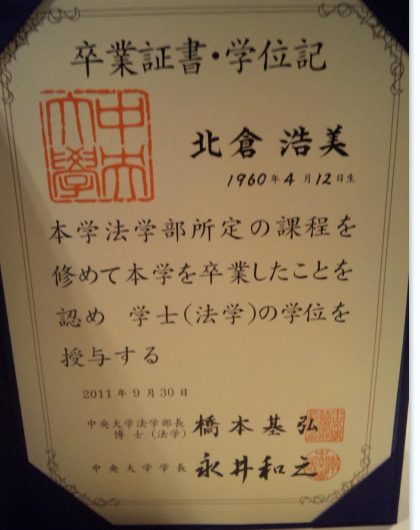 卒業証書・学位記
中央
大學
北倉 浩美
1960年4月12日生
本学法学部所定の課程を
修めて本学を卒業したことを
認め 学士(法学)の学位を
授与する
2011年9月30日
中央大学法学部長
博士(法学)
橋本基弘
中央大学学長 永井和之